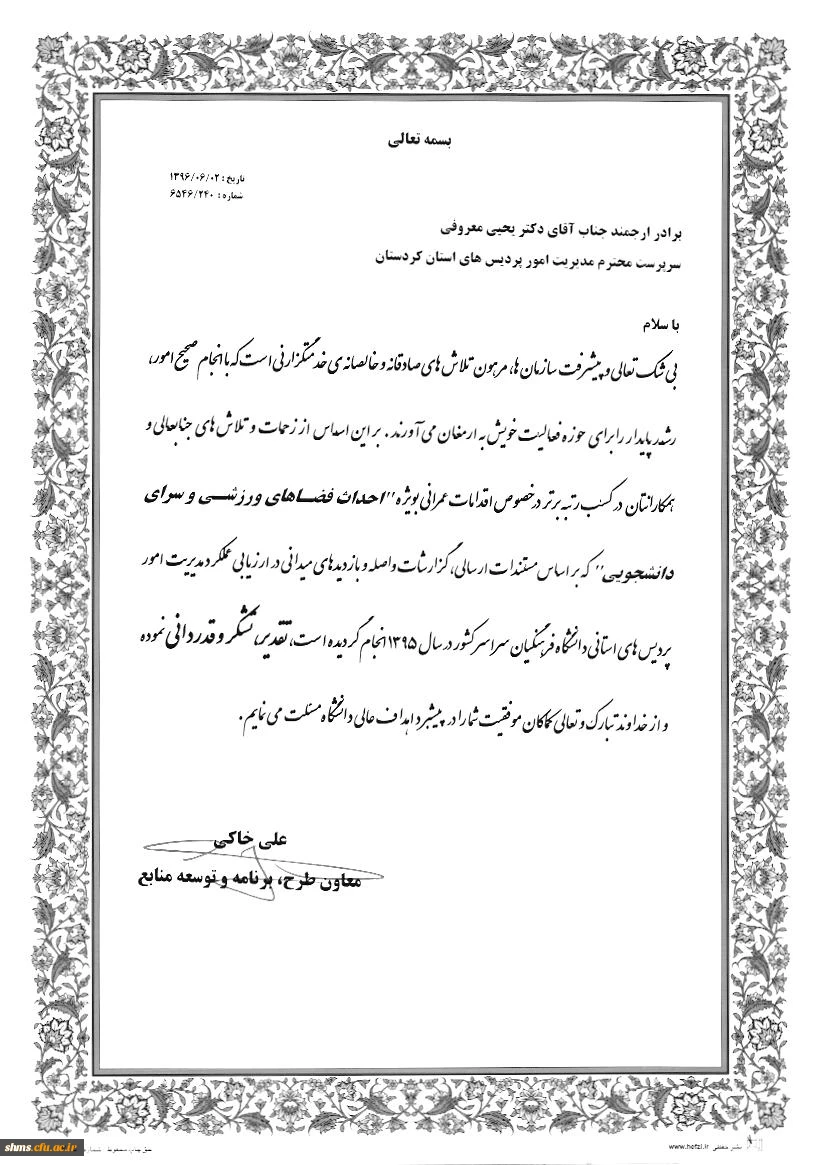 بسمه تعالی
تاریخ : ۱۳۹۶/۰۶/۰۲
شماره : ۶۵۴۶/۲۴۰
برادر ارجمند جناب آقای دکتر یحیی معروفی
سرپرست محترم مدیریت امور پردیس های استان کردستان
با سلام
بی شک تعالی و پیشرفت سازمان ها، مرهون تلاش های صادقانه و خالصانه ی خدمتگزارانی است که با انجام صحیح امور،
رشد پایدار را برای حوزه فعالیت خویش به ارمغان می آورند . بر این اساس از زحمات و تلاش های جنابعالی و
همکارانتان در کسب رتبه برتر در خصوص اقدامات عمرانی بویژه "احداث فضاهای ورزشی و سرای
دانشجویی" که بر اساس مستندات ارسالی، گزارشات واصله و بازدیدهای میدانی در ارزیابی عملکرد مدیریت امور
پردیس های استانی دانشگاه فرهنگیان سراسر کشور در سال ۱۳۹۵ انجام گردیده است، تقدیر، تشکر و قدردانی نموده
و از خداوند تبارک و تعالی کماکان موفقیت شما را در پیشبرد اهداف عالی دانشگاه مسئلت می نمایم.
علی خاکی
معاون طرح، برنامه و توسعه منابع
shms.cfu.ac.ir
حق چاپ محفوظ
www.hefzi.ir نشر حفظی